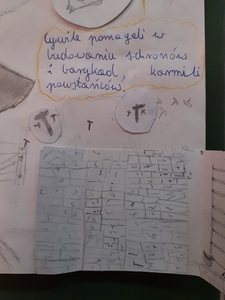 cywile pomagali w
budowaniu schronów
i barykad, karmili
powstańców,
T